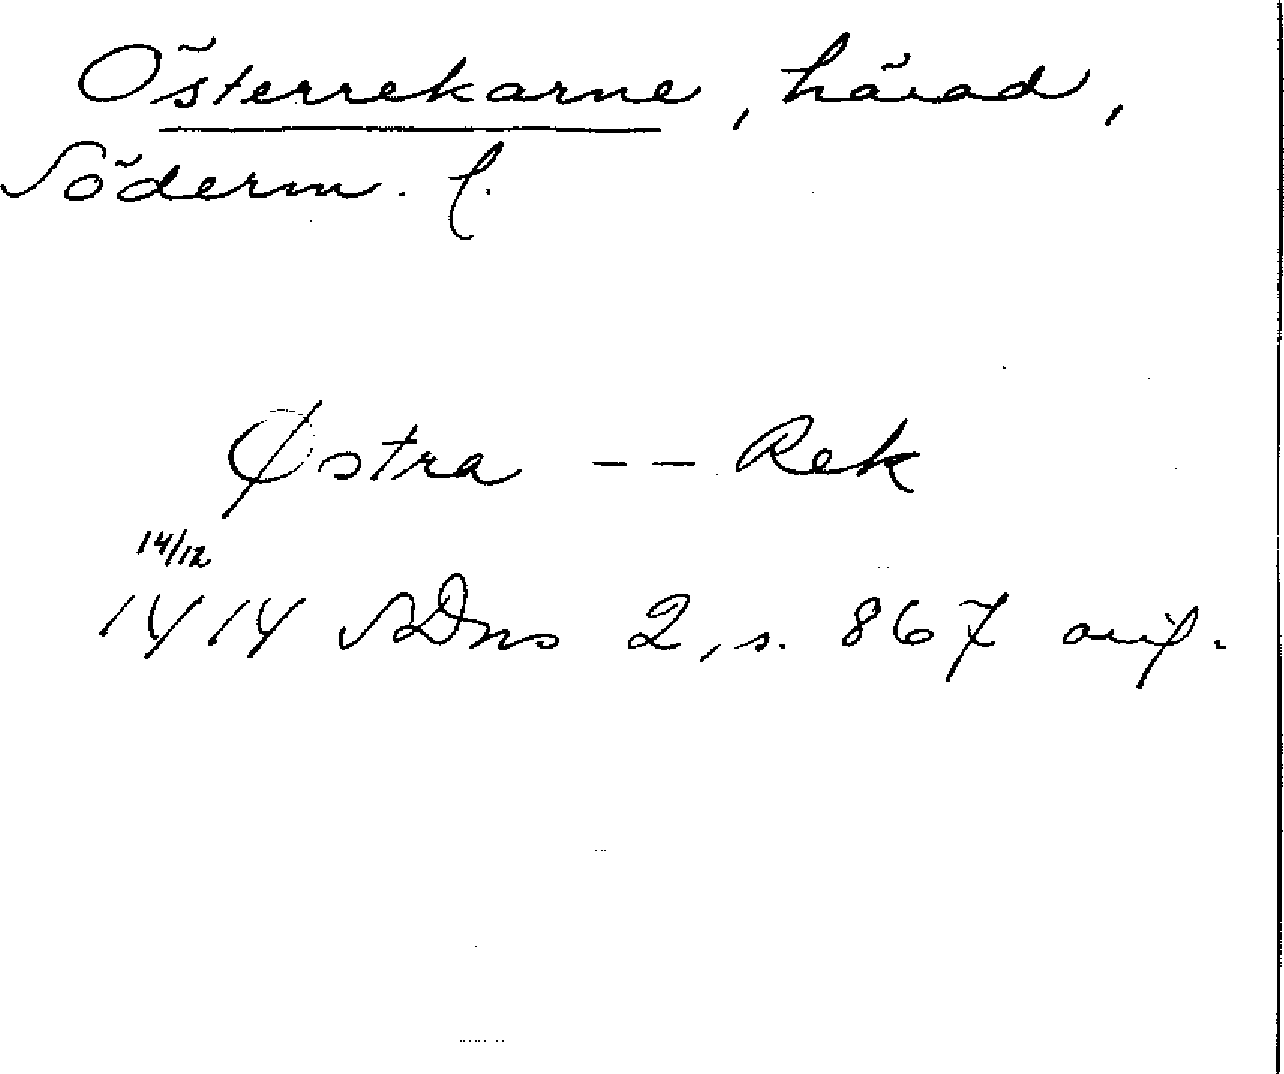 Österrekarne, härad,
Söderm. l.
Østra -- Rek
14/12
1414 SDns 2, s. 867 orig.